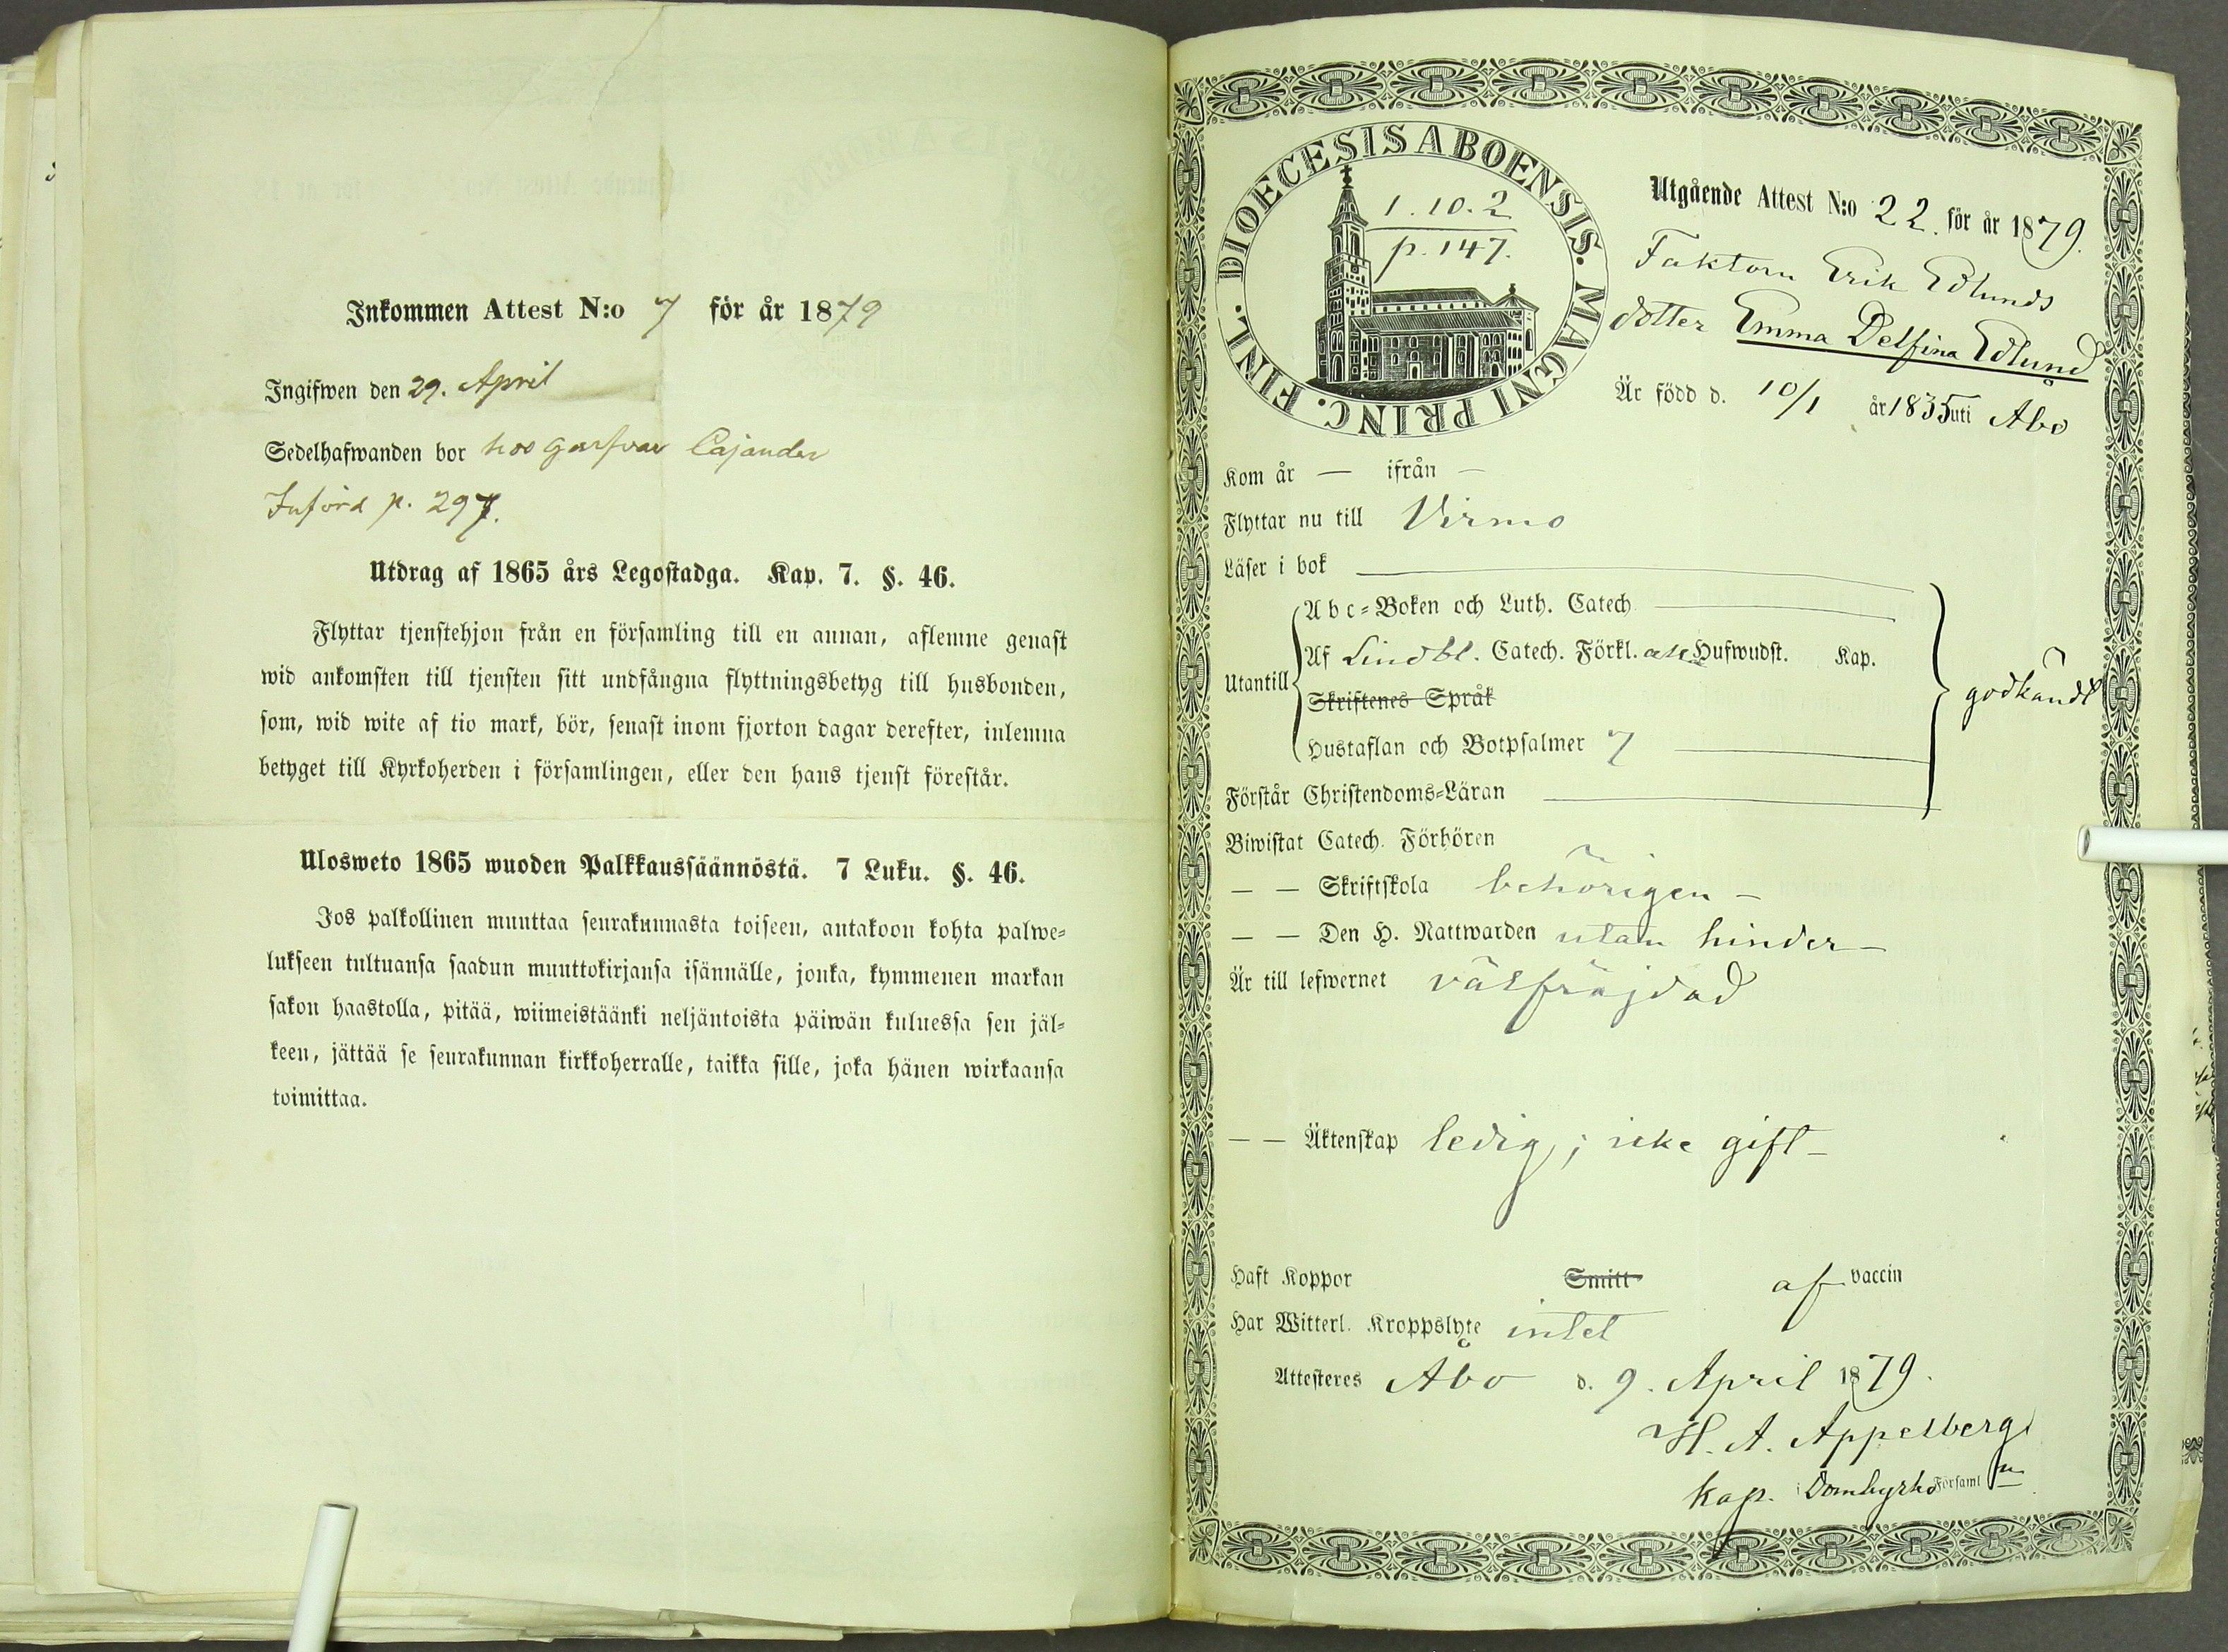 Inkommen Attest N:o 7 för år 1879
Ingifwen den 29. April
Sedelhafwanden bor hos garfvar Cajander
Införd p. 297.
Utdrag af 1865 års Legostadga. Kap. 7. §. 46.
Flyttar tjenstehjon från en församling till en annan, aflemne genast
wid ankomsten till tjensten sitt undfångna flyttningsbetyg till husbonden,
som, wid wite af tio mark, bör, senast inom fjorton dagar derefter, inlemna
betyget till Kyrkoherden i församlingen, eller den hans tjenst förestår.
Ulosweto 1865 wuoden Palkkaussäännöstä. 7 Luku. §. 46.
Jos palkollinen muuttaa seurakunnasta toiseen, antakoon kohta palwe-
lukseen tultuansa saadun muuttokirjansa isännälle, jonka, kymmenen markan
sakon haastolla, pitää, wiimeistäänki neljäntoista päiwän kuluessa sen jäl-
keen, jättää se seurakunnan kirkkoherralle, taikka sille, joka hänen wirkaansa
toimittaa.
DIOECESIS ABOENSIS. MAGNI PRINC. FINL.
1. 10. 2
p. 147.
Utgående Attest N:o 22. för år 1879.
Faktorn Erik Edlunds
dotter Emma Delfina Edlund
Är född d. 10/1 år 1835 uti Åbo
Kom år — ifrån —
Flyttar nu till Virmo
Läser i bok
Utantill
Abc-Boken och Luth. Catech.
Af Lindbl. Catech. Förkl. Hufwudst. Kap.
Skriftenes Språk
Hustaflan och Botpsalmer 7
godkändt
Förstår Christendoms-Läran
Biwistat Catech. Förhören
— — Skriftskola behörigen —
— — Den H. Nattwarden utan hinder —
Är till lefwernet välfräjdad
— — Äktenskap ledig; icke gift —
Haft Koppor Smitt af vaccin
Har Witterl. Kroppslyte intet
Attesteres Åbo d. 9. April 1879.
H. A. Appelberg
Kap. i Domkyrko Församl n